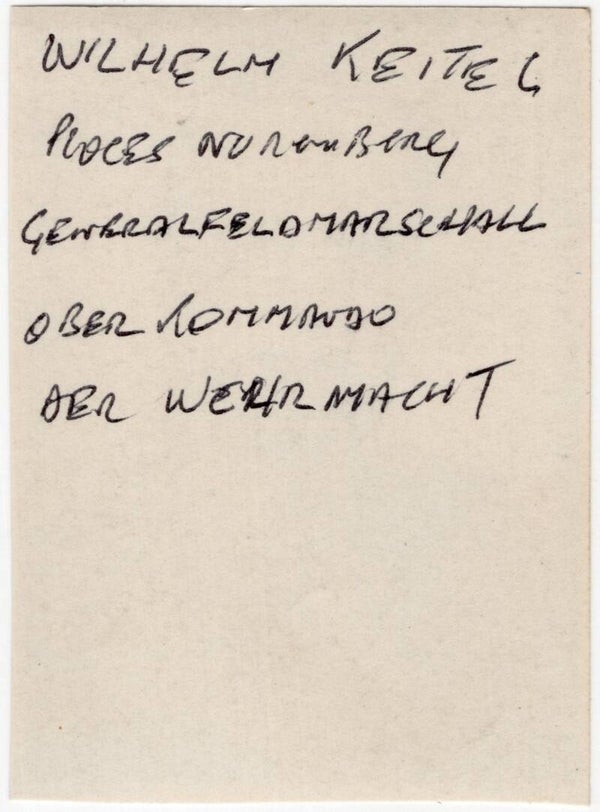 WILHELM KEITEL
PROCES NUREMBERG
GENERALFELDMARSCHALL
OBER KOMMANDO
DER WEHRMACHT